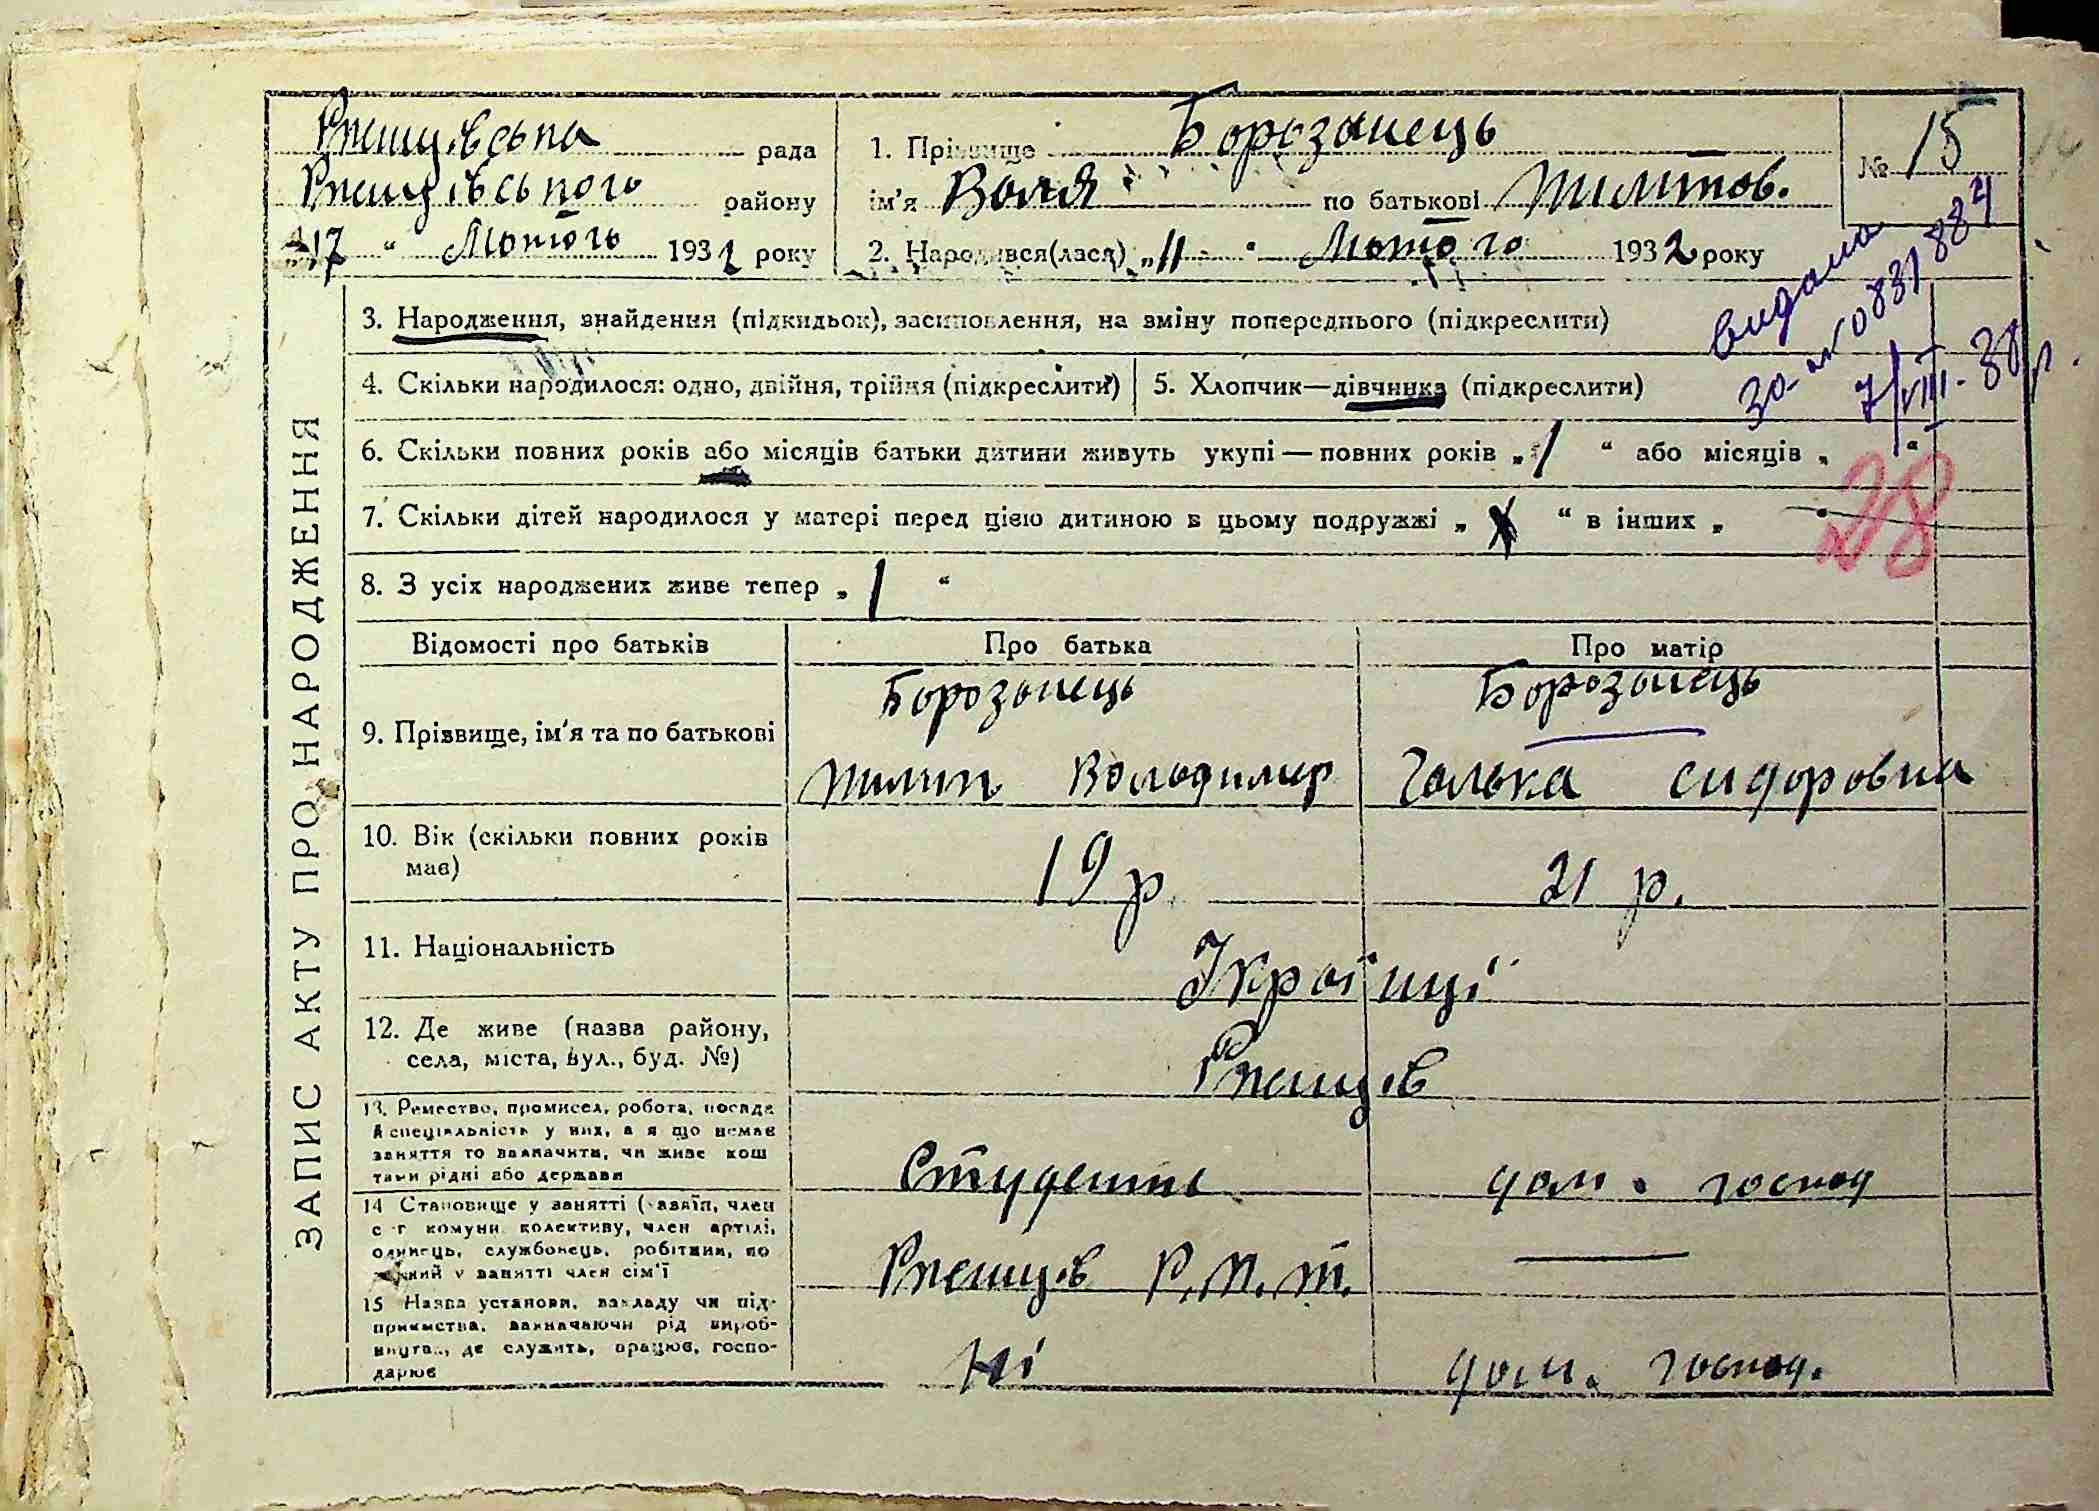 Ржищівська рада
Ржищівського району
"17" Лютого 1932 року
1. Прізвище Борозанець
ім'я Воля по батькові Пилипов.
№ 15
2. Народився(лася) „11" Лютого 1932 року
видано
за № 0831884
7/VIII-38 р.
ЗАПИС АКТУ ПРО НАРОДЖЕННЯ
3. Народження, знайдення (підкидьок), засиновлення, на зміну попереднього (підкреслити)
4. Скільки народилося: одно, двійня, трійня (підкреслити)
5. Хлопчик—дівчинка (підкреслити)
6. Скільки повних років або місяців батьки дитини живуть укупі — повних років „1" або місяців „ "
7. Скільки дітей народилося у матері перед цією дитиною в цьому подружжі „ " в інших „ "
28
8. З усіх народжених живе тепер „1"
Відомості про батьків Про батька Про матір
9. Прізвище, ім'я та по батькові
Борозанець Борозанець
Пилип Володимир Галька Сидоровна
10. Вік (скільки повних років має)
19 р. 21 р.
11. Національність
Українці
12. Де живе (назва району,
села, міста, вул., буд. №)
Ржищів
13. Ремество, промисел, робота, посада
й спеціяльність у них, а я що немає
заняття то зазначити, чи живе кош
тами рідні або держави
Студент дом. господ
14 Становище у занятті (хазяїн, член
с-г комуни, колективу, член артілі,
одинець, службовець, робітник, по
член сім'ї
Ржищів Р.П.Т. —
15 Назва установи, закладу чи під-
приємства, зазначаючи рід вироб-
ництва, де служить, працює, госпо-
дарює
Ні дом. господ.